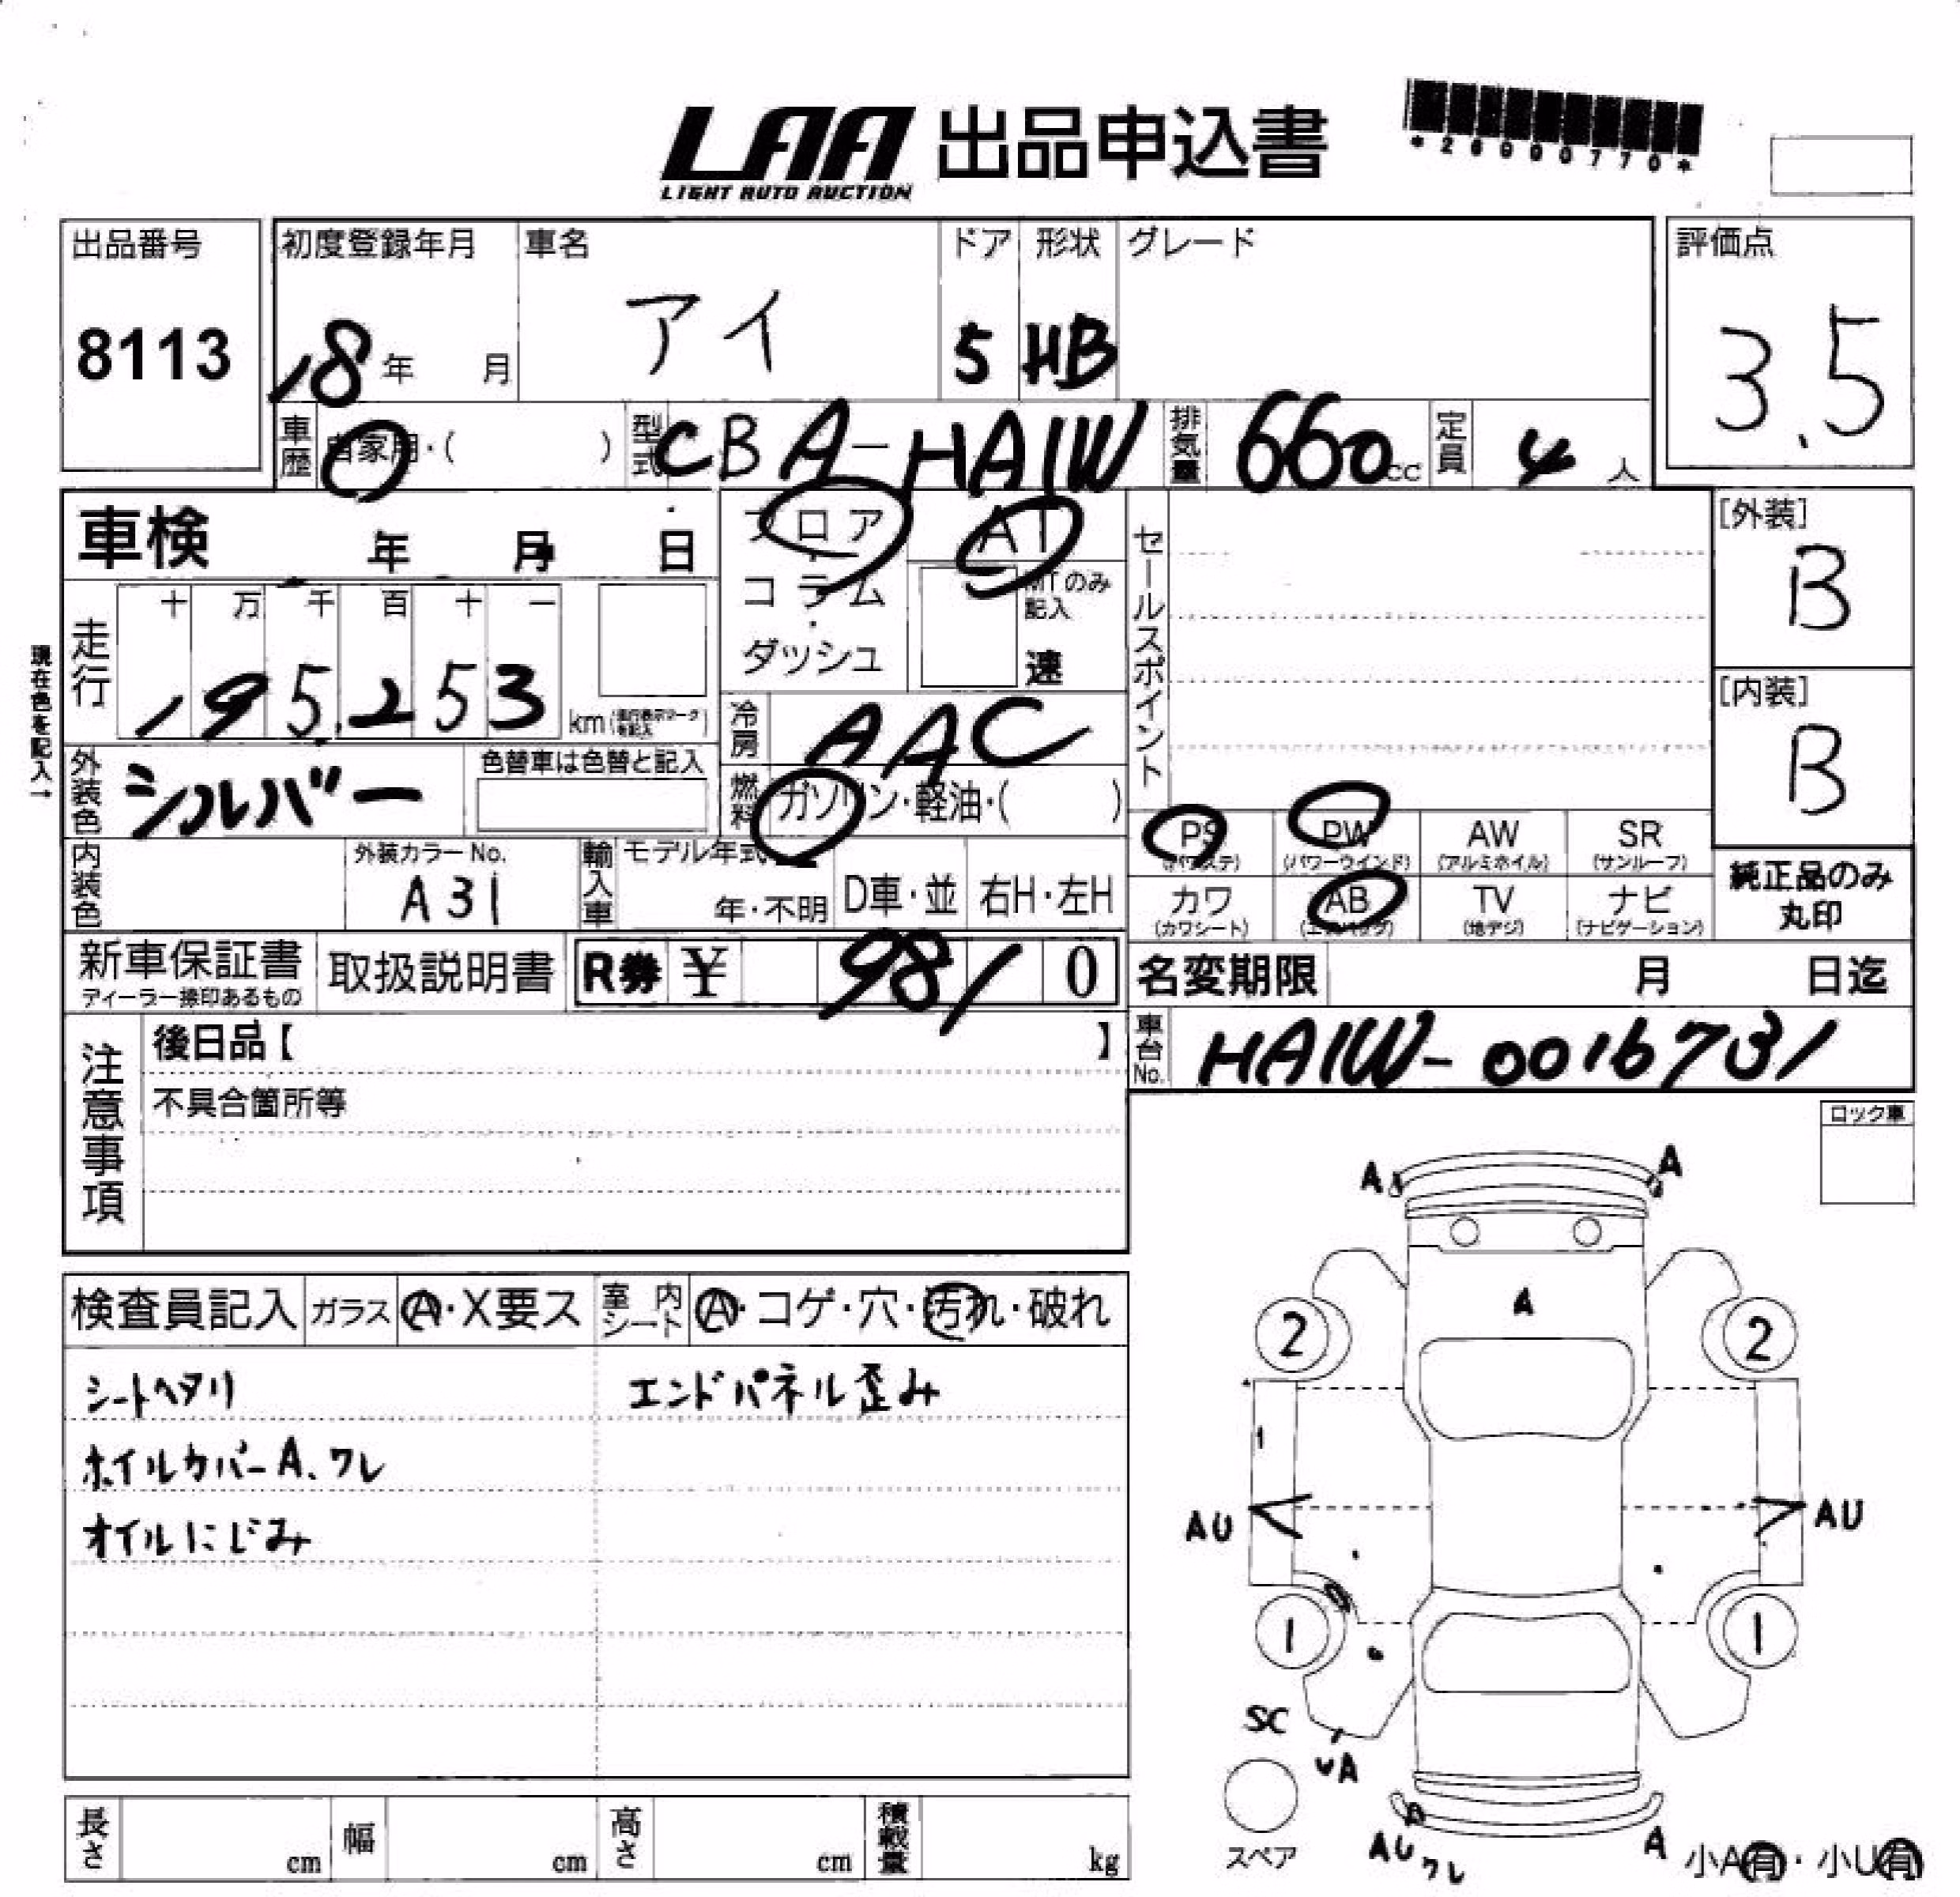 LAA 出品申込書
LIGHT AUTO AUCTION
*26000770*
出品番号
8113
初度登録年月
18年 月
車名
アイ
ドア
5
形状
HB
グレード
評価点
3.5
車歴 自家用・( )
型式 CBA-HA1W
排気量 660cc
定員 4人
車検 年 月 日
フロア・コラム・ダッシュ
AT
MTのみ記入
速
セールスポイント
[外装]
B
[内装]
B
現在色を記入→
走行
十 万 千 百 十 一
195,253 km
冷房 AAC
外装色 シルバー
色替車は色替と記入
燃料 ガソリン・軽油・( )
PS (パワステ)
PW (パワーウインド)
AW (アルミホイル)
SR (サンルーフ)
カワ (カワシート)
AB (エアバッグ)
TV (地デジ)
ナビ (ナビゲーション)
純正品のみ
丸印
内装色
外装カラーNo.
A31
輸入車 モデル年式
年・不明
D車・並
右H・左H
新車保証書
ディーラー捺印あるもの
取扱説明書
R券 ¥ 981 0
名変期限 月 日迄
車台No. HA1W-0016731
注意事項
後日品【 】
不具合箇所等
ロック車
検査員記入
ガラス A・X要ス
室内シート A・コゲ・穴・汚れ・破れ
シートヘタリ
エンドパネル歪み
ホイルカバーA、ワレ
オイルにじみ
A A
A
2 2
AU AU
1 1
SC
UA
スペア
AU ワレ
A
小A有・小U有
長さ cm
幅 cm
高さ cm
積載量 kg